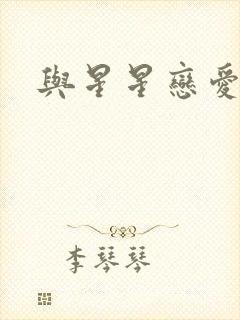 與星星戀愛
李琴琴